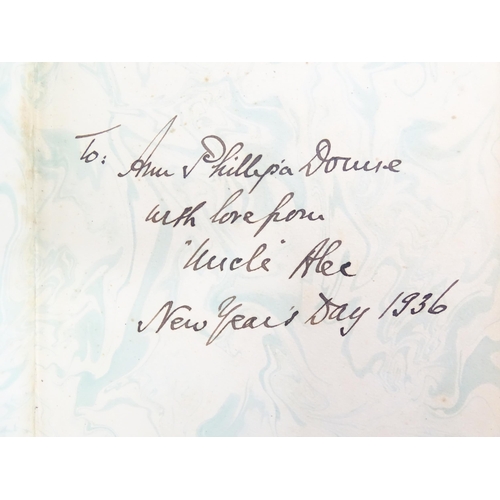 To: Ann Phillipa Downe
with love from
"Uncle" Alec
New Year's Day 1936